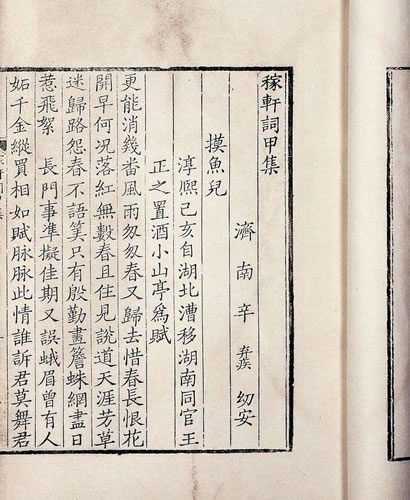 稼軒詞甲集
濟南辛弃疾㓜安
摸魚兒
淳熙己亥自湖北漕移湖南同官王
正之置酒小山亭爲賦
更能消幾畨風雨匆匆春又歸去惜春長恨花
開早何況落紅無數春且住見說道天涯芳草
迷歸路怨春不語筭只有殷勤畫簷蛛網盡日
惹飛絮 長門事準擬佳期又誤蛾眉曾有人
妬千金縱買相如賦脉脉此情誰訴君莫舞君